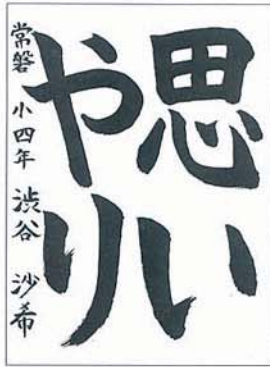 思い
やり
常磐 小四年 渋谷 沙希